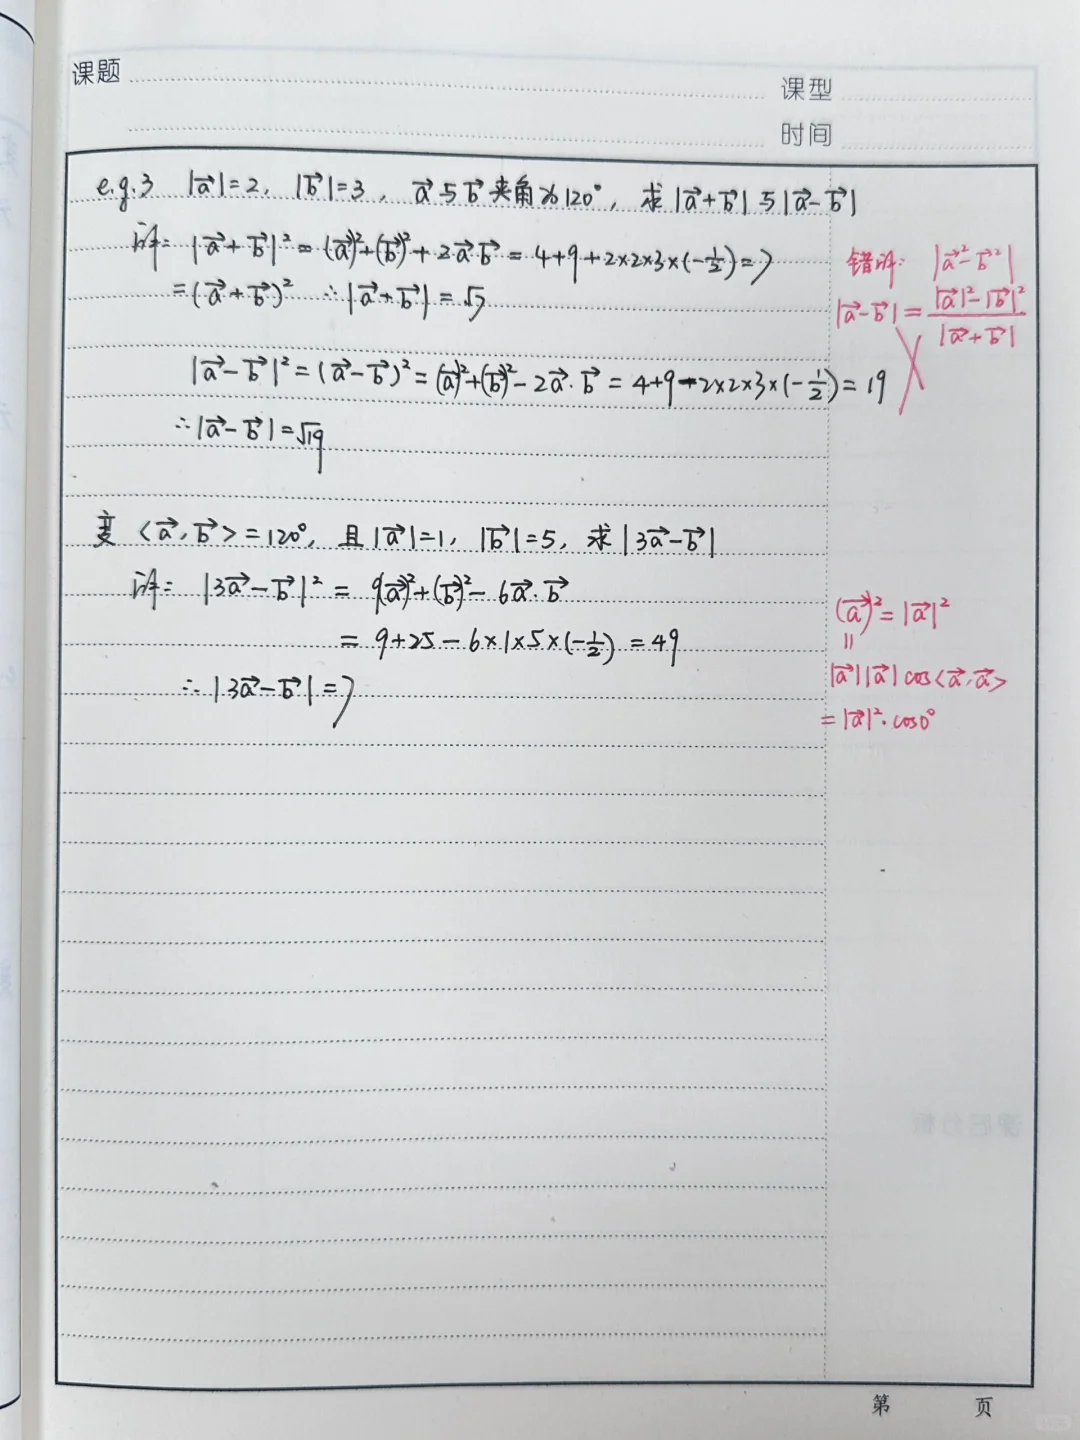 课题
课型
时间
e.g.3 |a⃗|=2, |b⃗|=3, a⃗与b⃗夹角为120°, 求|a⃗+b⃗|与|a⃗-b⃗|
解: |a⃗+b⃗|² = (a⃗)²+(b⃗)²+2a⃗·b⃗ = 4+9+2×2×3×(-1/2)=7
=(a⃗+b⃗)² ∴|a⃗+b⃗|=√7
|a⃗-b⃗|²=(a⃗-b⃗)²=(a⃗)²+(b⃗)²-2a⃗·b⃗=4+9-2×2×3×(-1/2)=19
∴|a⃗-b⃗|=√19
变 <a⃗,b⃗>=120°, 且|a⃗|=1, |b⃗|=5, 求|3a⃗-b⃗|
解: |3a⃗-b⃗|² = 9(a⃗)²+(b⃗)²-6a⃗·b⃗
= 9+25-6×1×5×(-1/2) = 49
∴|3a⃗-b⃗|=7
错解: |a⃗²-b⃗²|
|a⃗-b⃗| = (|a⃗|²-|b⃗|²)/|a⃗+b⃗|
(a⃗)²=|a⃗|²
=
|a⃗||a⃗|cos<a⃗,a⃗>
=|a⃗|²·cos0°
第 页